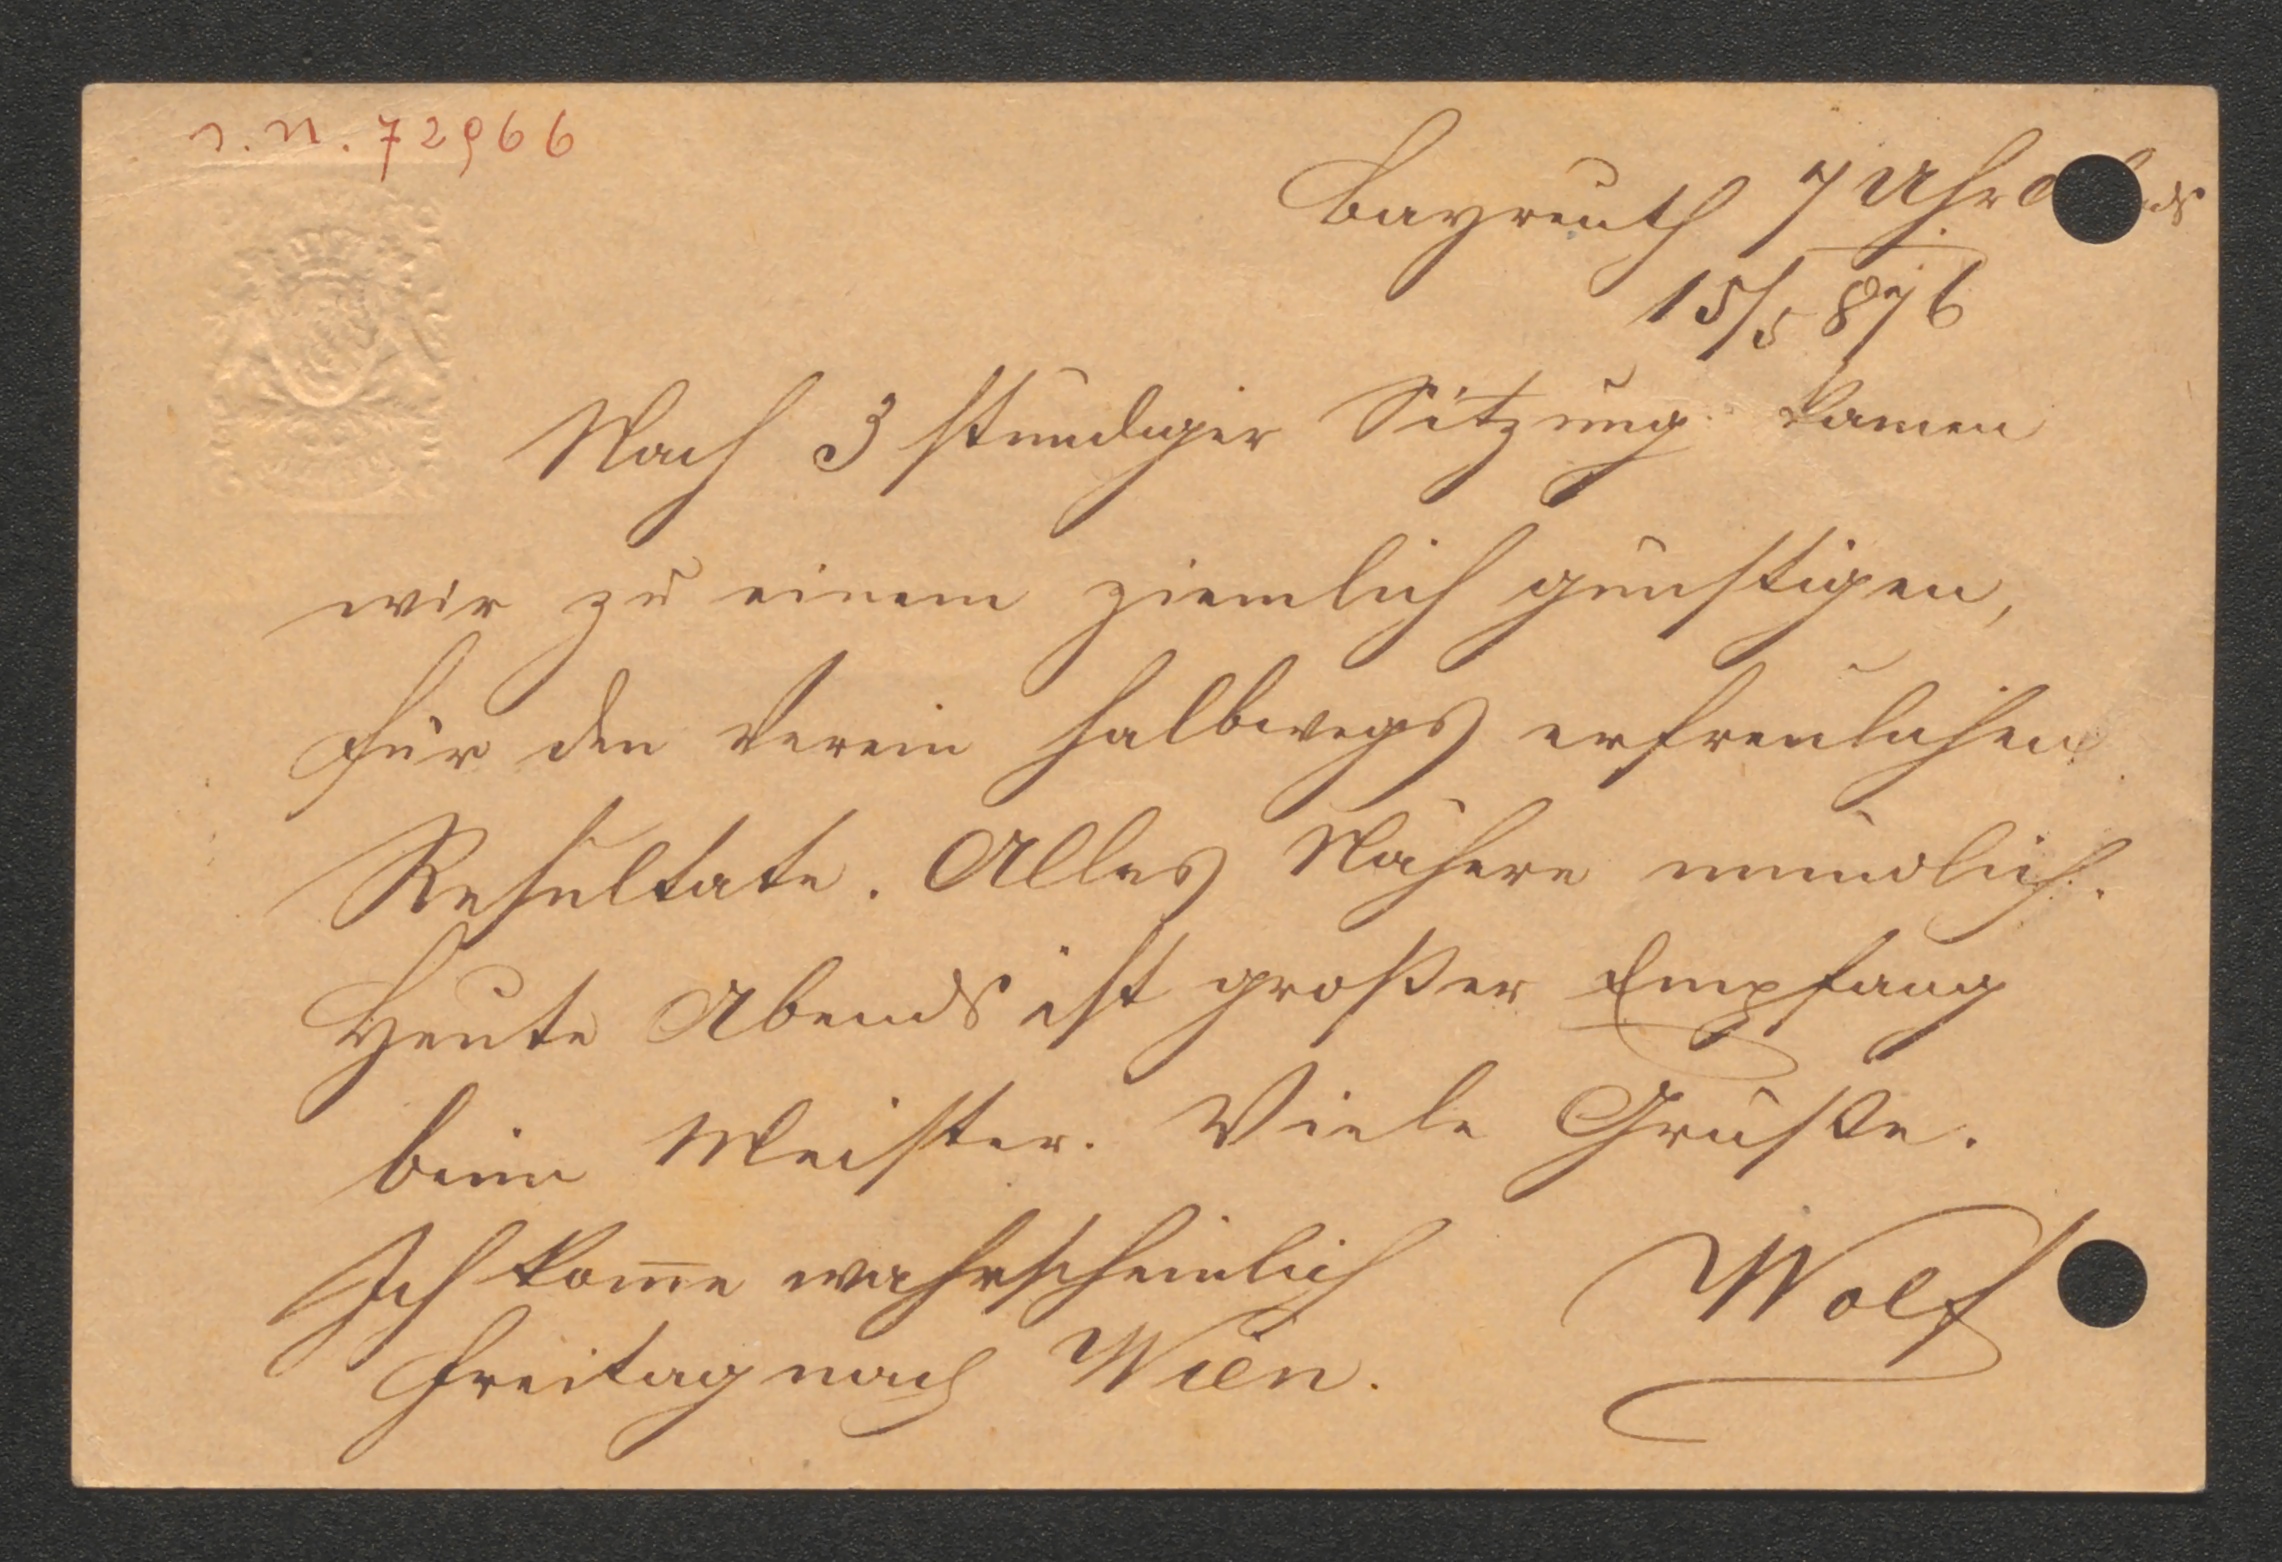 I. N. 72966
Bayreuth 7 Uhr Abends
15/5 876
Nach 3 stündiger Sitzung kamen
wir zu einem ziemlich günstigen,
für den Verein halbwegs erfreulichen
Resultate. Alles Nähere mündlich.
Heute Abends ist großer Empfang
beim Meister. Viele Grüße.
Ich kom̅e wahrscheinlich
Freitag nach Wien.
Wolf